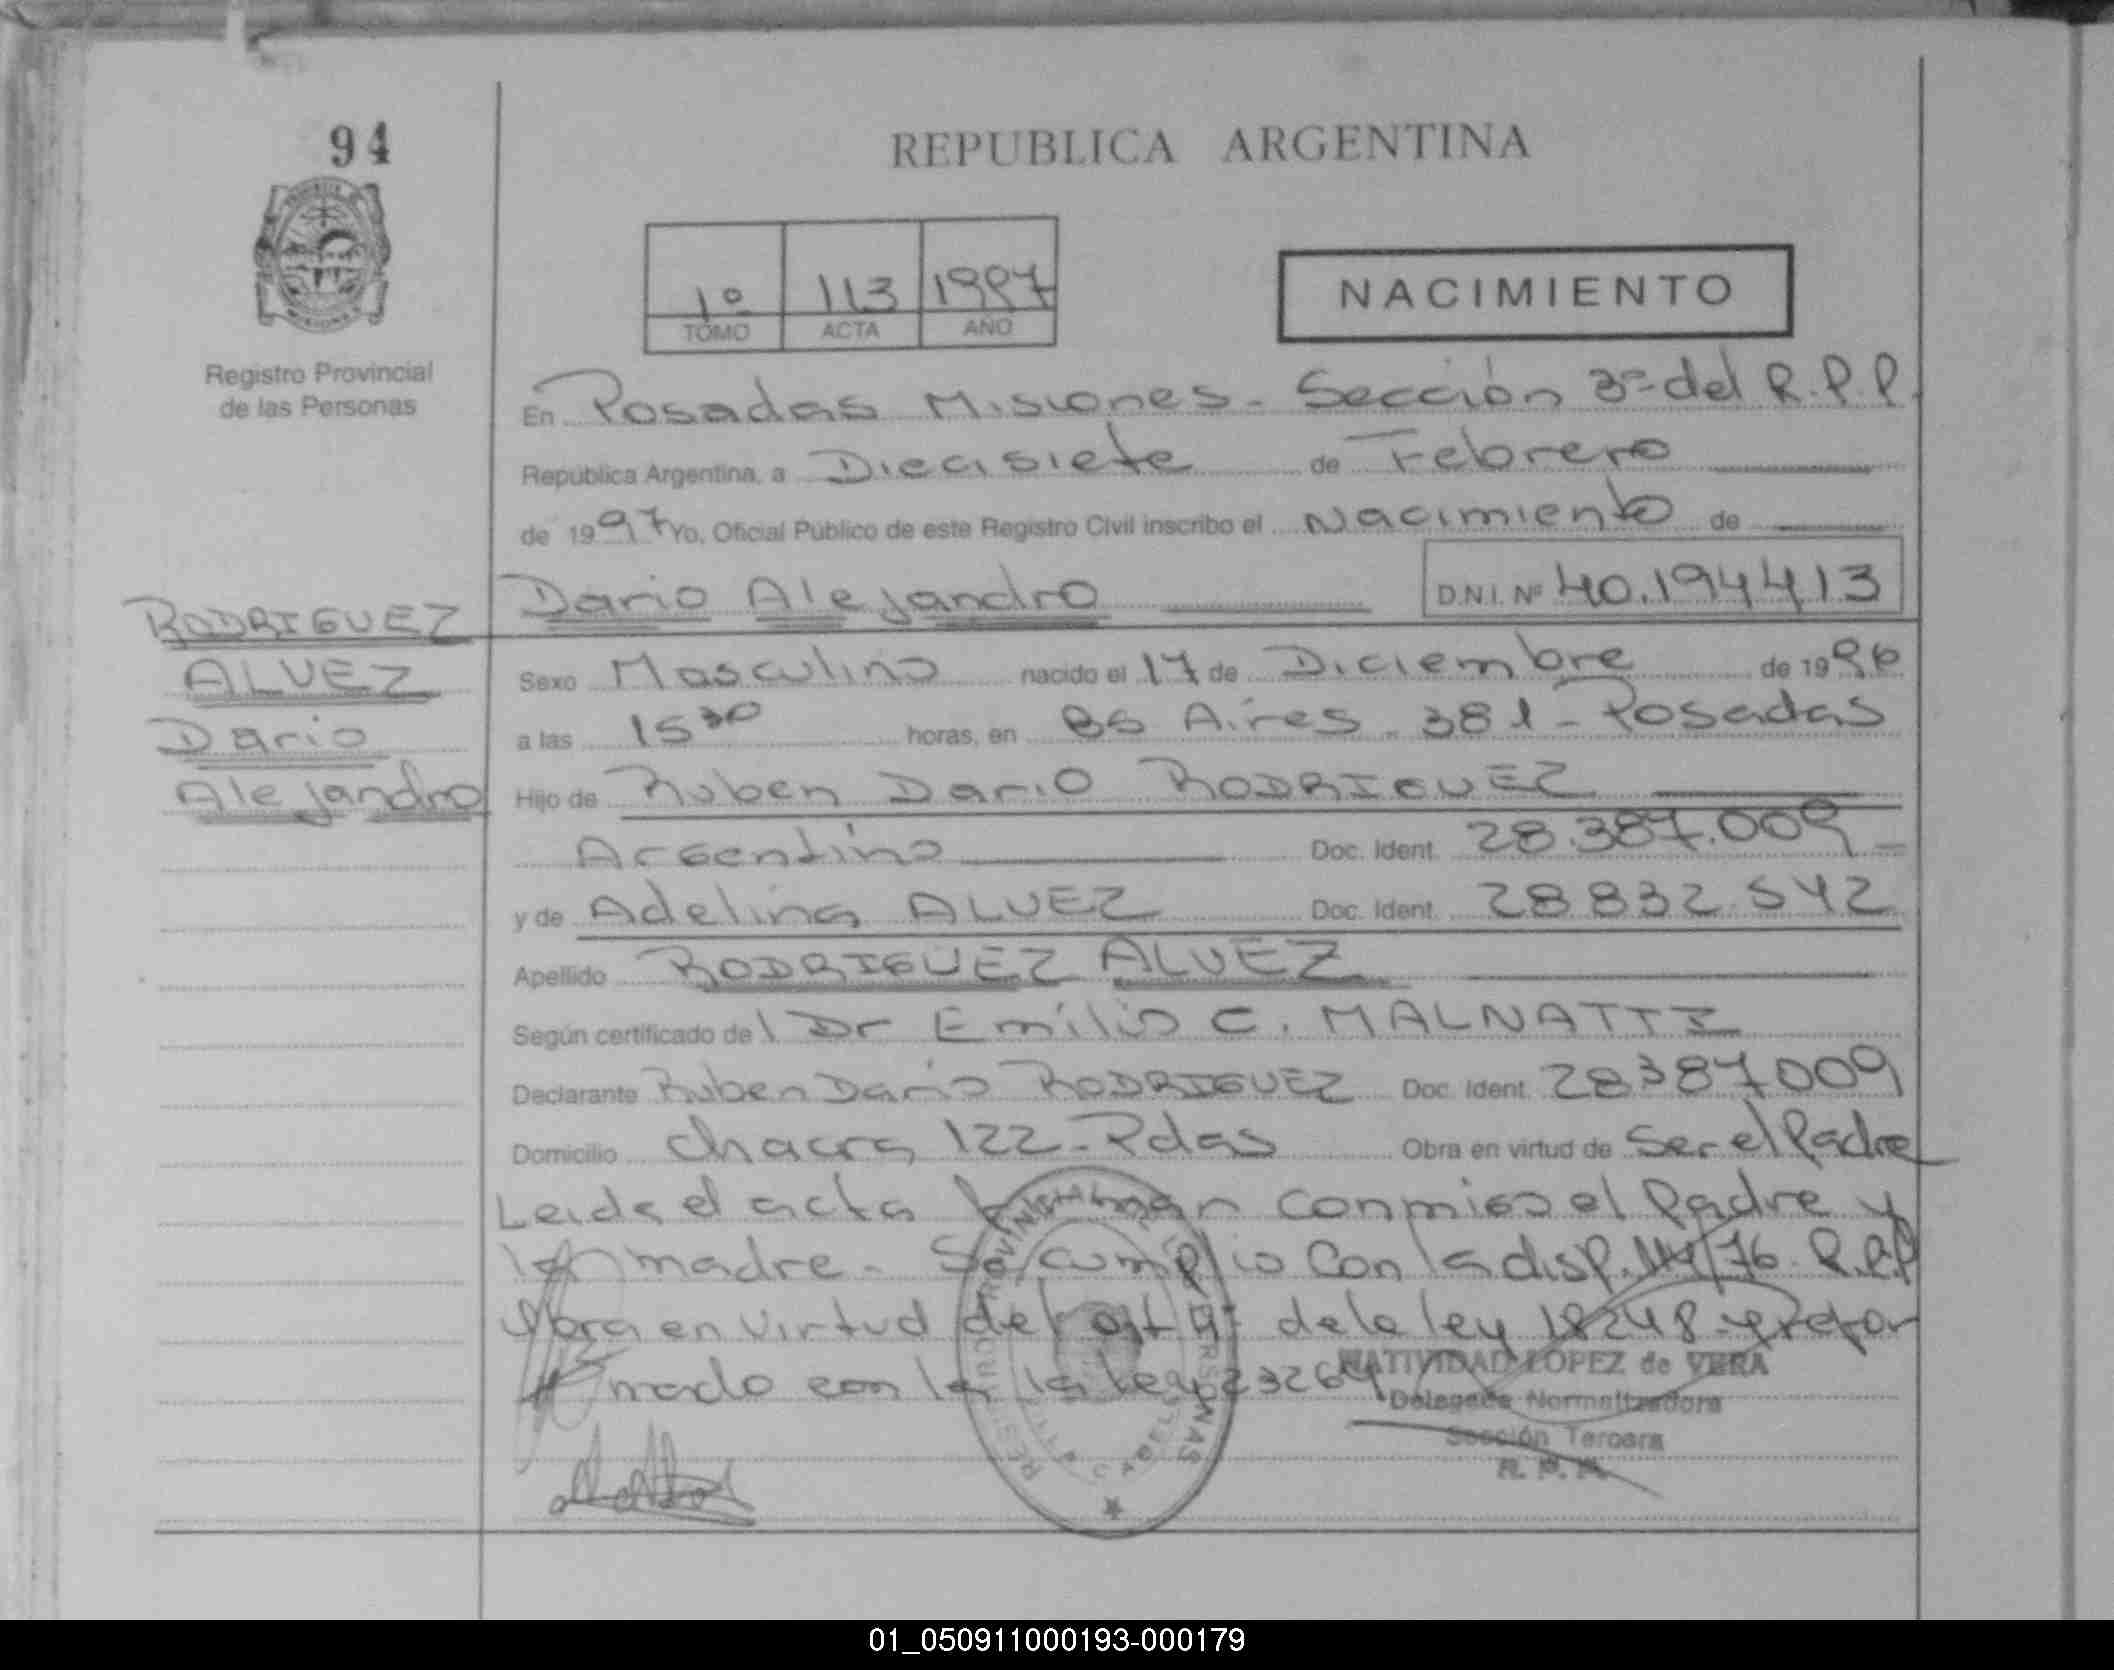 94
REPUBLICA ARGENTINA
1º 113 1997
TOMO ACTA AÑO
NACIMIENTO
Registro Provincial
de las Personas
En Posadas Misiones - Sección 3ª del R.P.P.
República Argentina, a Diecisiete de Febrero
de 1997 Yo, Oficial Público de este Registro Civil inscribo el Nacimiento de
Dario Alejandro D.N.I. Nº 40.194413
RODRIGUEZ
ALVEZ
Dario
Alejandro
Sexo Masculino nacido el 17 de Diciembre de 1996
a las 15 30 horas, en Bs Aires 381 - Posadas
Hijo de Ruben Dario RODRIGUEZ
Argentino Doc. Ident. 28.387.009
y de Adelina ALVEZ Doc. Ident. 28832.542
Apellido RODRIGUEZ ALVEZ
Según certificado de l Dr Emilio C. MALNATTI
Declarante Ruben Dario RODRIGUEZ Doc. Ident. 28387009
Domicilio Chacra 122 - Pdas Obra en virtud de Ser el Padre
Leida el acta firman conmigo el Padre y
la madre - Se cumplio con la disp. 114/76 R.P.P
Obra en virtud del art 4º de la ley 18248 y refor
mado con la la ley 23264
NATIVIDAD LOPEZ de VERA
Delegada Normalizadora
Sección Tercera
R. P. P.
01_050911000193-000179